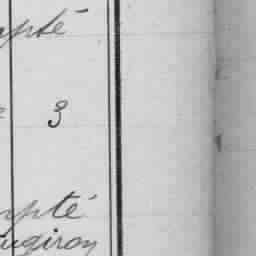 pté
3
pté
ugiron